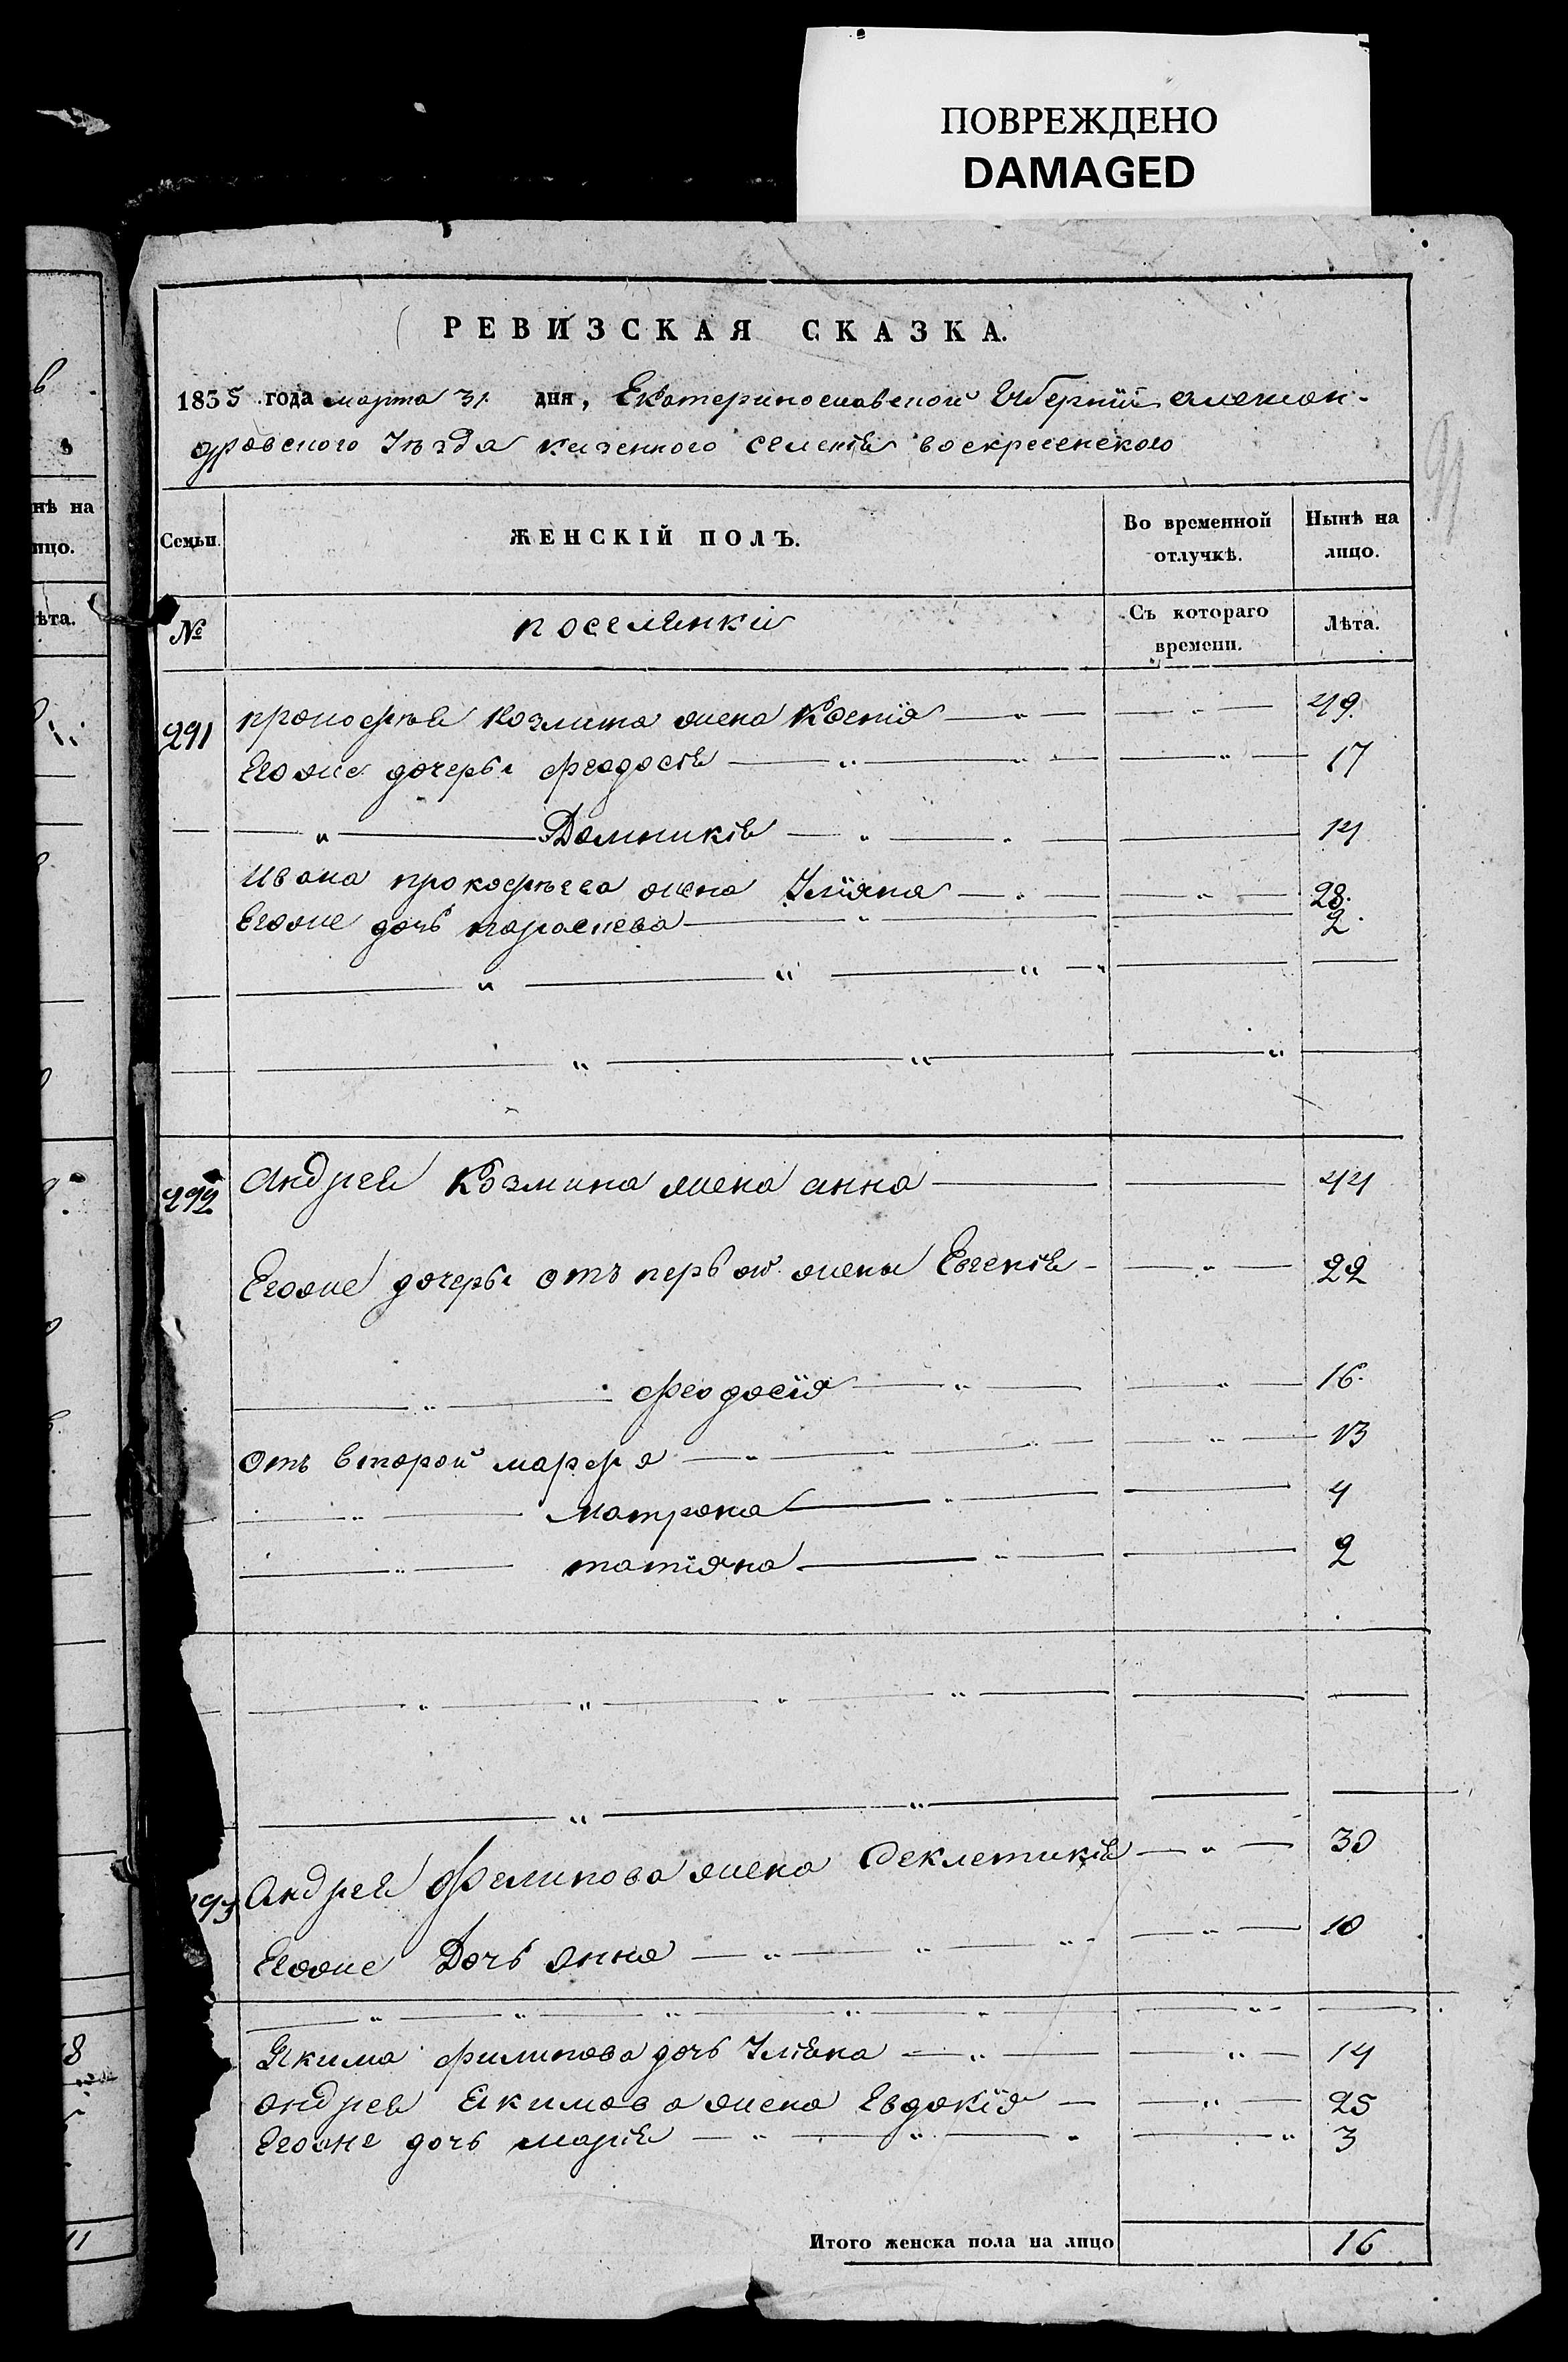 ПОВРЕЖДЕНО
DAMAGED
РЕВИЗСКАЯ СКАЗКА.
1835 года марта 31. дня, Екатеринославской Губернии алексан-
дровского Уезда казенного селенія воскресенского
Семьи. ЖЕНСКІЙ ПОЛЪ. Во временной отлучкѣ. Нынѣ на лицо.
№ поселянки Съ котораго времени. Лѣта.
291 прокофья Козмина жена Ксенія 49.
Егоже дочеры феодосія 17
Домникія 14
Ивана прокофьева жена Уліяна 28.
Егоже дочь параскева 2.
292 Андрея Козмина жена анна 44
Егоже дочеры отъ первой жены Евгенія 22
феодосія 16.
Отъ второй марфа 13
матрона 4
татіяна 2
93 Андрея Фелипова жена Феклетикія 30
Егоже Дочь анна 10
Якима филипова дочь Уліяна 14
андрея Екимова жена Евдокія 25
Егоже дочь марія 3
Итого женска пола на лицо 16
нѣ на
ицо.
ѣта.
8
11